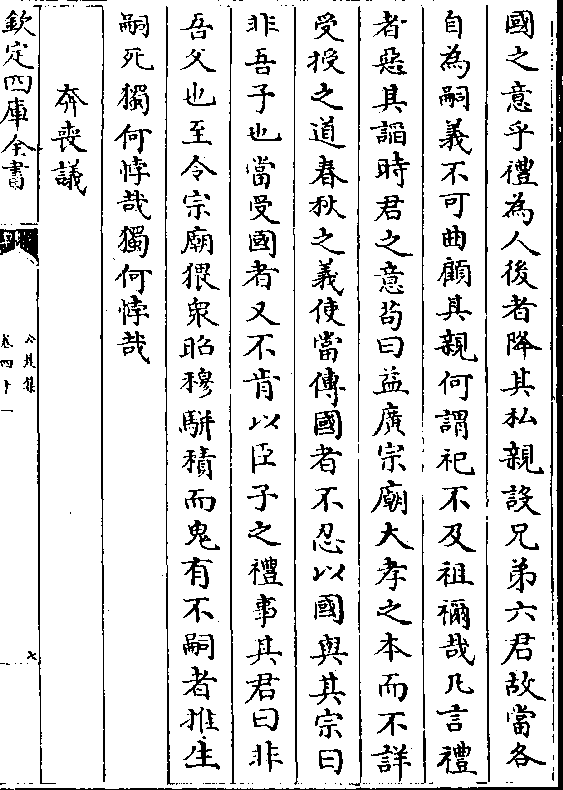 國之意乎禮為人後者降其私親設兄弟六君故當各
自為嗣義不可曲顧其親何謂祀不及祖禰哉凡言禮
者惡其謟時君之意苟曰益廣宗廟大孝之本而不詳
受授之道春秋之義使當傳國者不忍以國與其宗曰
非吾子也當受國者又不肯以臣子之禮事其君曰非
吾父也至令宗廟猥衆昭穆駢積而鬼有不嗣者推生
嗣死獨何悖哉獨何悖哉
奔喪議
欽定四庫全書
公是集
卷四十一
七